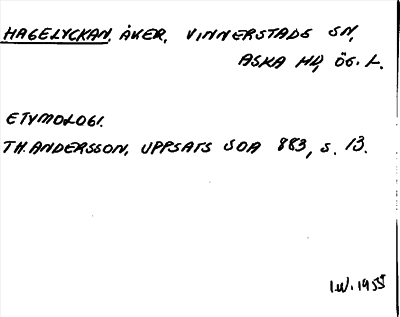 HAGELYCKAN, ÅKER, VINNERSTADS SN,
ASKA HD, ÖG. L.
ETYMOLOGI.
TH. ANDERSSON, UPPSATS SOA 883, S. 13.
I.W. 1955